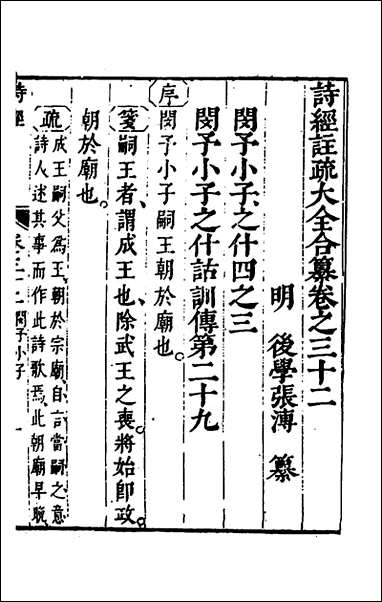 詩經註疏大全合纂卷之三十二
明 後學張溥 纂
閔予小子之什四之三
閔予小子之什詁訓傳第二十九
序
閔予小子嗣王朝於廟也。
箋 嗣王者、謂成王也、除武王之喪。將始即政。
朝於廟也。
疏 成王嗣父為王、朝於宗廟、自言當嗣之意
詩人述其事而作此詩歌焉、此朝廟早晚
詩經 卷之三十二 閔予小子 一